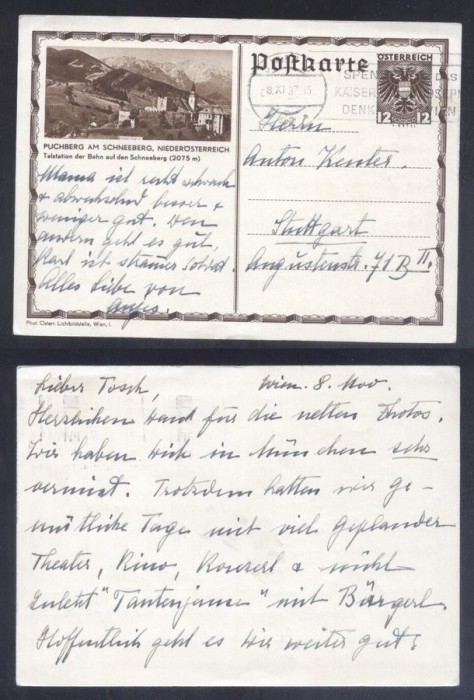 Postkarte
ÖSTERREICH
12 12
8. XI. 37
SPEN DAS
KAISER
DENK WIEN
PUCHBERG AM SCHNEEBERG, NIEDERÖSTERREICH
Talstation der Bahn auf den Schneeberg (2075 m)
Herrn
Anton
Stuttgart
Augustenstr. 71 B II.
Mama ist recht schwach
+ abwechselnd besser +
weniger gut. Den
andern geht es gut,
Karl ist
Alles Liebe von
Phot. Österr. Lichtbildstelle, Wien, I.
Lieber Wien. 8. Nov.
Herzlichen Dank für die netten Photos.
Wir haben Dich in München sehr
vermisst. Trotzdem hatten wir ge-
mütliche Tage mit viel Geplauder
Theater, Kino, Konzert & nicht
zuletzt "Tantenjause" mit
Hoffentlich geht es Dir weiter gut.